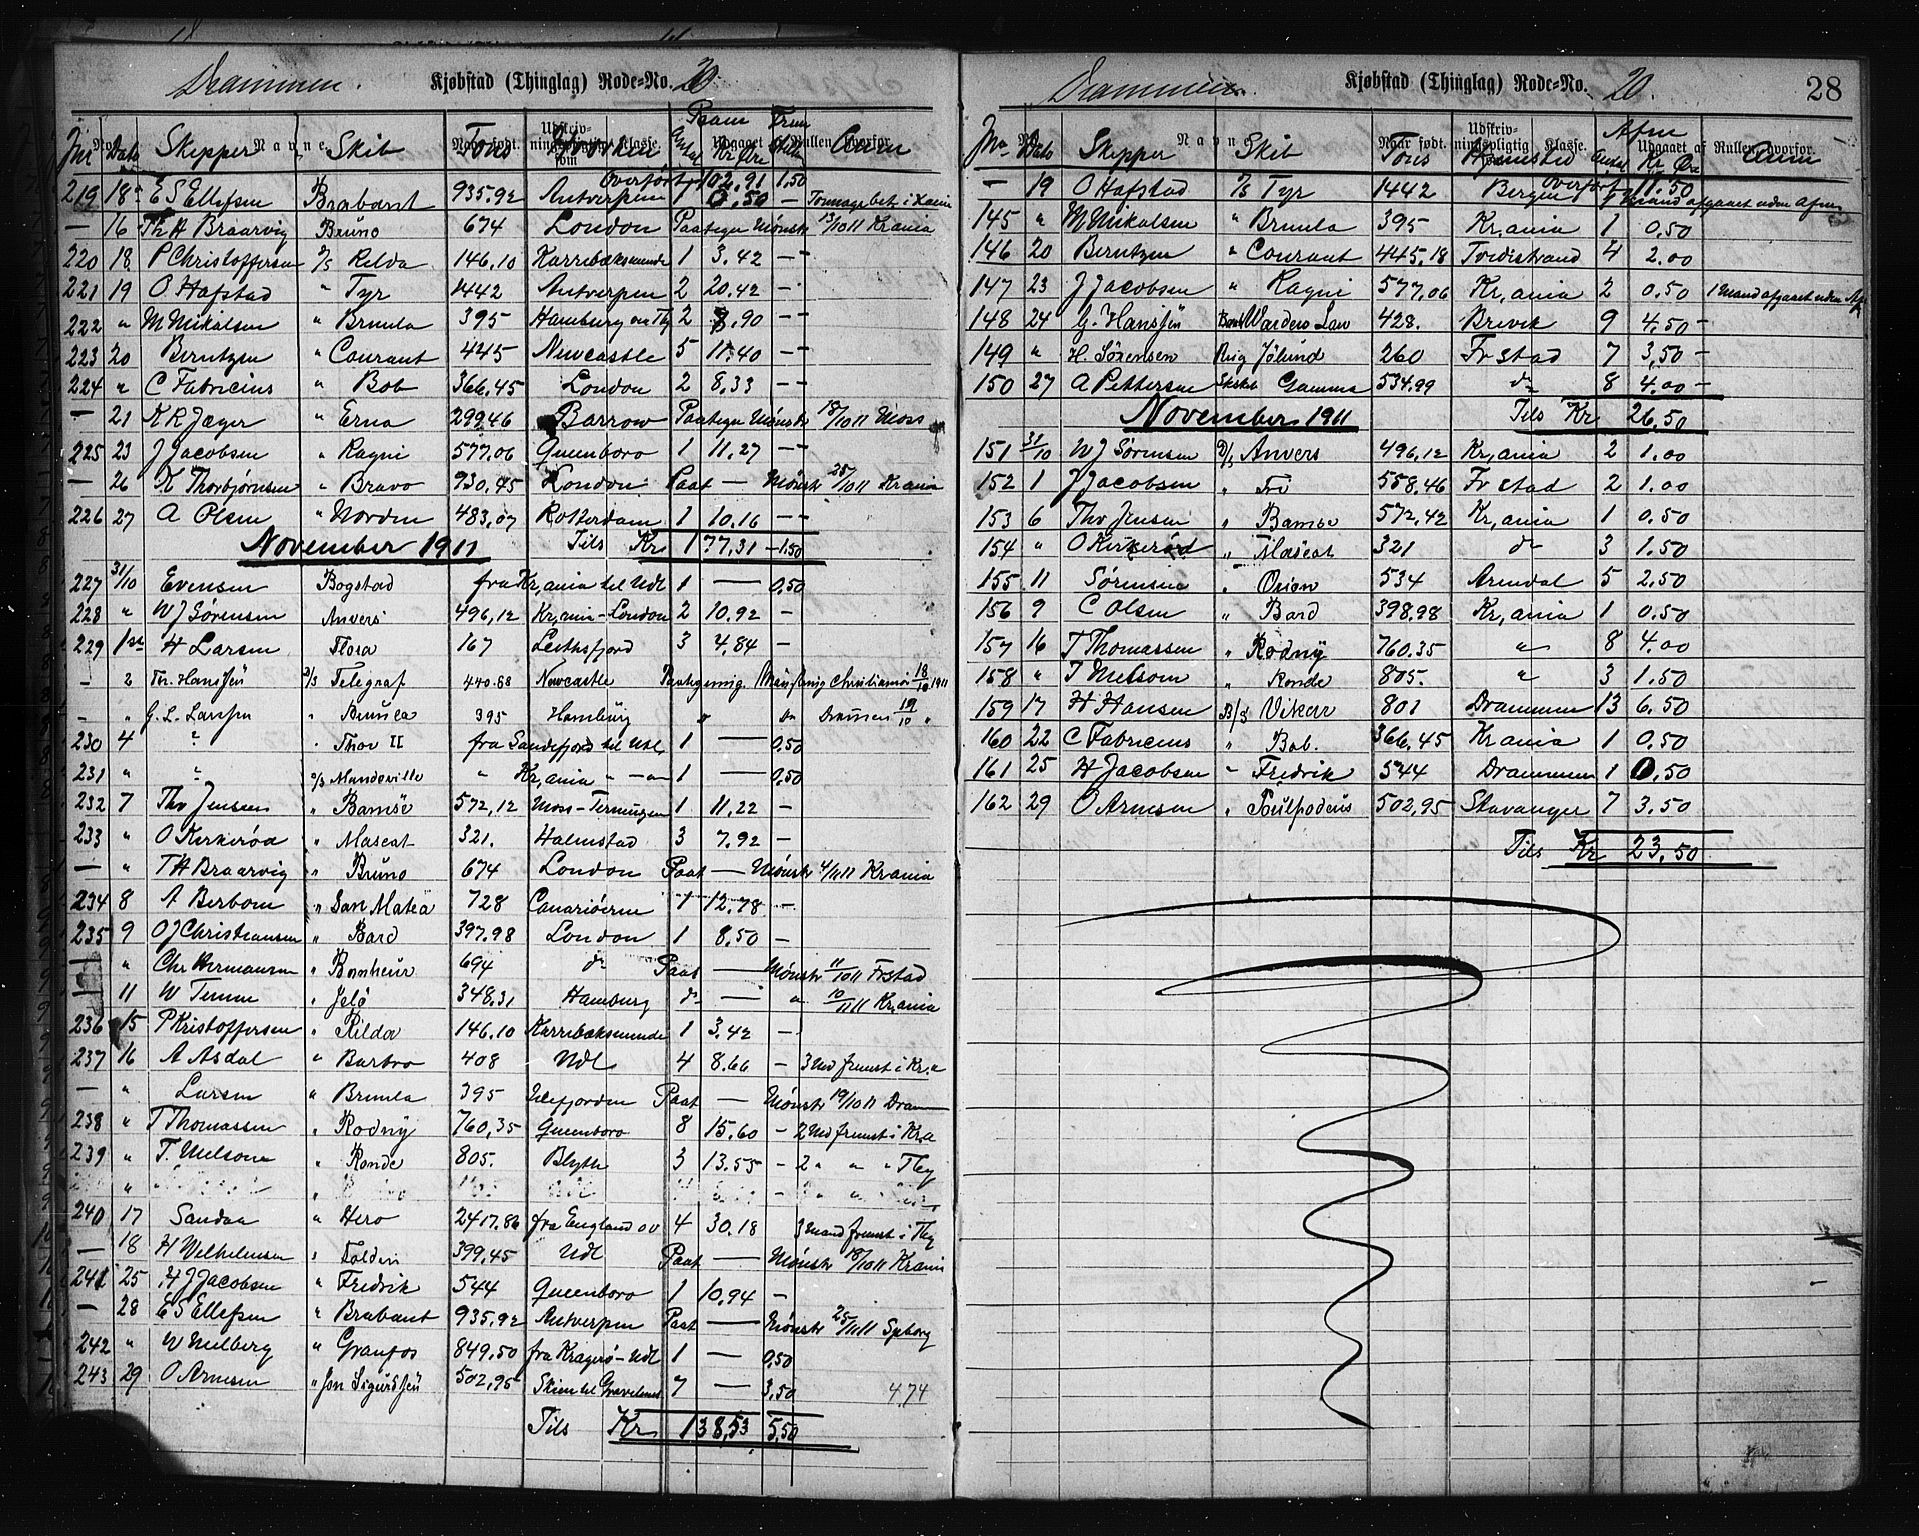 Drammen. Kjøbstad (Thinglag) Rode-No. 20.
Jnr Dato Skipper Skib Tons Hvorhen Antal Paam Kr Øre Frem Anm
Overført 102.91 1.50
219 18 E S Ellefsen Brabant 935.92 Antverpen 1 0.50 —
— 16 Th H Braarvig Bruno 674 London Paategn Mønstr 13/10 11 Krania
220 18 P Christoffersen D/S Rilda 146.10 Karrebæksmunde 1 3.42 —
221 19 O Hafstad " Tyr 1442 Antverpen 2 20.42 —
222 " M Mikalsen " Brumla 395 Hamburg 2 7.90 —
223 20 Berntzen " Courant 445 Newcastle 5 11.40 —
224 " C Fabricius " Bob 366.45 London 2 8.33 —
— 21 K R Jæger " Erna 299.46 Barrow Paategn Mønstr 18/10 11 Moss
225 23 J Jacobsen " Ragni 577.06 Queenboro 1 11.27 —
— 26 K Thorbjørnsen " Bravo 930.45 London Paat — Mønstr 25/10 11 Krania
226 27 A Olsen " Norden 483,07 Rotterdam 1 10.16 —
November 1911 Tils Kr 177.31 1.50
227 31/10 Evensen Bogstad fra Kr,ania til Udl 1 — 0,50
228 " W J Sørensen Anvers 496,12 Kr,ania-London 2 10.92 —
229 1ste H Larsen Flora 167 Leithsfjord 3 4,84 —
— 2 Th. Hanssen D/S Telegraf 440.68 Newcastle Paategning. Christiania 18/10 1911
— " G. L. Larssen " Brumla 395 Hamburg " Do Dramen 19/10 "
230 4 ? " Thor II fra Sandefjord til Udl 1 — 0,50
231 " ? D/S Mandeville " Kr,ania " — 1 — 0,50
232 7 Thv Jensen " Bamse 572,12 Moss-Terningen 1 11.22 —
233 " O Kirkerød " Mascat 321. Halmstad 3 7.92 —
— " T H Braarvig " Bruno 674 London Paat — Mønstr 4/11 11 Krania
234 8 A Berbom " San Matea 728 Canariøerne 1 12.78 —
235 9 O J Christiansen " Bard 397.98 London 1 8,50 —
— " Chr Hermansen " Bonheur 694 do Paat — Mønstr 11/10 11 Frstad
— 11 W Timm " Jelø 348,31 Hamburg do — " 10/11 11 Kr,ania
236 15 P Kristoffersen " Rilda 146.10 Karrebæksmunde 1 3.42 —
237 16 A Asdal " Barbro 408 Udl 4 8.66 — 3 Md fremst i Kr,a
— " Larsen " Brumla 395 Ulefjorden Paat — Mønstr 19/10 11 Dramen
238 " T Thomassen " Rodny 760,35 Queenboro 8 15.60 — 2 Md fremst i Kr,a
239 " T. Nielsom " Ronde 805. Blyth 3 13.55 — 2 " " " Tbg
240 17 Sandaa " Hero 2417.86 fra England o v 4 30.18 3 mand fremst i Tbg
— 18 H Wilhelmsen " Folden 399.45 Udl Paat — Mønstr 18/10 11 Krania
241 25 H J Jacobsen " Fredrik 544 Queenboro 1 10.94 —
— 28 E S Ellefsen " Brabant 935.92 Antverpen Paat — Mønstr 25/11 11 Spborg
242 " W Milberg " Granfos 849.50 fra Kragerø-Udl 1 — 0,50
243 29 O Arnesen " Jon Sigurdssen 502,95 Skien til Gravelines 7 — 3,50 4.74
Tils Kr 138,53 5,50
Drammen. Kjøbstad (Thinglag) Rode-No. 20. 28
Jnr Dato Skipper Skib Tons Hjemsted Antal Afm Kr Øre Anm
Overført 11.50
— 19 O Hafstad D/S Tyr 1442 Bergen 1 mand afgaaet uden Afm
145 " M Mikalsen " Brumla 395 Kr,ania 1 0.50
146 20 Berntzen " Courant 445,18 Tvedestrand 4 2.00
147 23 J Jacobsen " Ragni 577,06 Kr,ania 2 0.50 1 mand afgaaet uden Af
148 24 G. Hanssen Bark Warders Law 428. Brevik 9 4,50 —
149 " H. Sørensen Brig Jølund 260 Frstad 7 3,50 —
150 27 A Pettersen Skskb Gamma 534.99 do 8 4.00 —
November 1911 Tils Kr 26,50
151 31/10 W J Sørensen D/S Anvers 496,12 Kr,ania 2 1.00
152 1 J Jacobsen " Fri 558.46 Frstad 2 1.00
153 6 Thv Jensen " Bamse 572,42 Kr,ania 1 0.50
154 " O Kirkerød " Mascat 321 do 3 1.50
155 11 Sørensen " Orion 534 Arendal 5 2.50
156 9 C Olsen " Bard 398.98 Kr,ania 1 0.50
157 16 T Thomassen " Rodny 760.35 " 8 4.00
158 " T Nielsom " Ronde 805. " 3 1.50
159 17 H Hansen D/S Vikar 801 Drammen 13 6.50
160 22 C Fabricius " Bob. 366,45 Krania 1 0.50
161 25 H Jacobsen " Fredrik 544 Drammen 1 0.50
162 29 O Arnesen " 502,95 Stavanger 7 3.50
Tils Kr 23,50